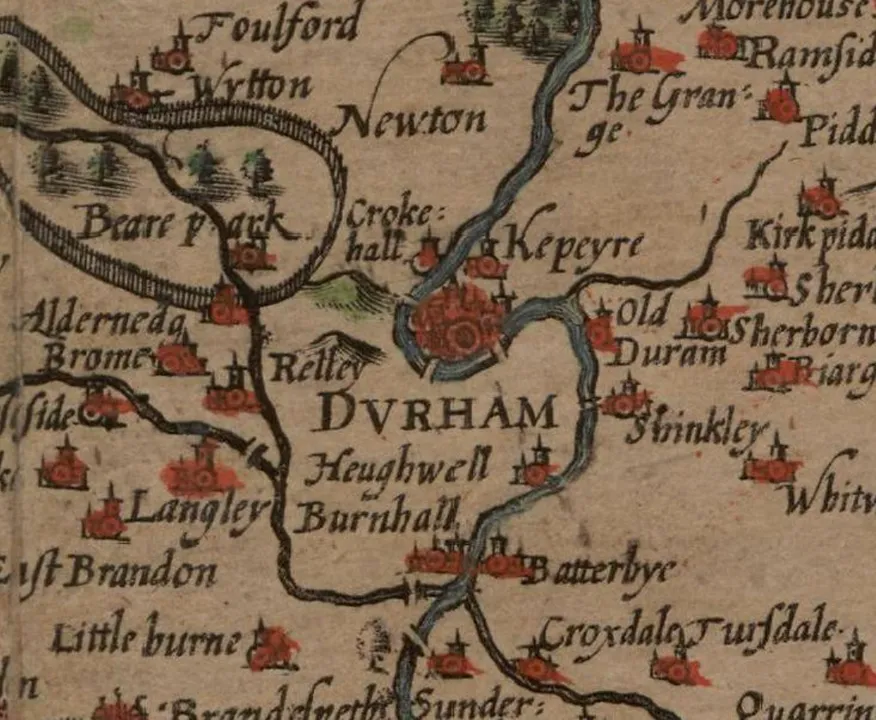 Morehouse
Foulford
Ramsid
Wytton
The Gran:
ge
Newton
Pidd
Beare park
Croke:
hall
Kepeyre
Kirk pidd
Sher
Alderneda
Old
Duram
Sherborn
Brome
Relley
side
DVRHAM
Shinkley
Heughwell
Langley
Burnhall
Whitw
East Brandon
Batterbye
Little burne
Croxdale
Tursdale
Brandspeth
Sunder:
Quarrin